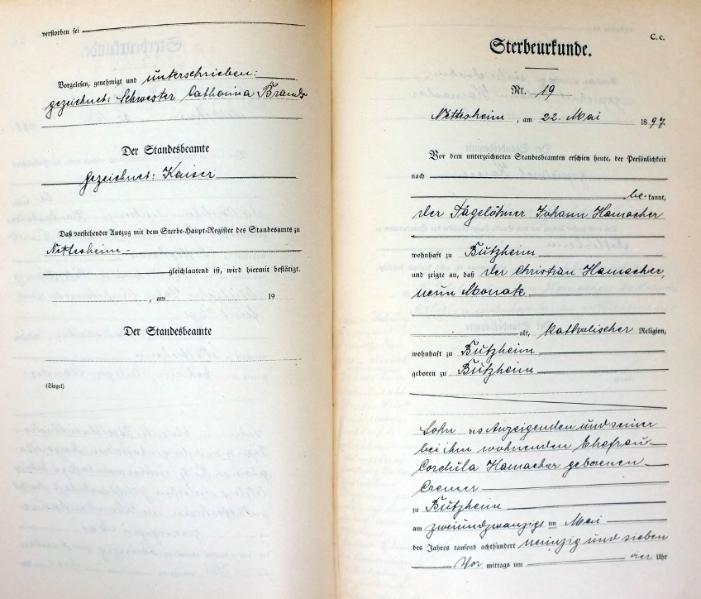 verstorben sei
Vorgelesen, genehmigt und unterschrieben:
gezeichnet: Schwester Catharina Brands
Der Standesbeamte
gezeichnet: Kaiser
Daß vorstehender Auszug mit dem Sterbe-Haupt-Register des Standesamts zu
Nettesheim
gleichlautend ist, wird hiermit bestätigt.
, am 19
Der Standesbeamte
(Siegel)
C. c.
Sterbeurkunde.
Nr. 19
Nettesheim, am 22. Mai 1897.
Vor dem unterzeichneten Standesbeamten erschien heute, der Persönlichkeit
nach
be-kannt,
der Tagelöhner Johann Hamacher
wohnhaft zu Butzheim
und zeigte an, daß der Christian Hamacher,
neun Monate
alt, katholischer Religion,
wohnhaft zu Butzheim
geboren zu Butzheim
Sohn des Anzeigenden und seiner
bei ihm wohnenden Ehefrau
Cordula Hamacher geborenen
Cremer
zu Butzheim
am zweiundzwanzigs ten Mai
des Jahres tausend achthundert neunzig und sieben
Vor mittags um Uhr